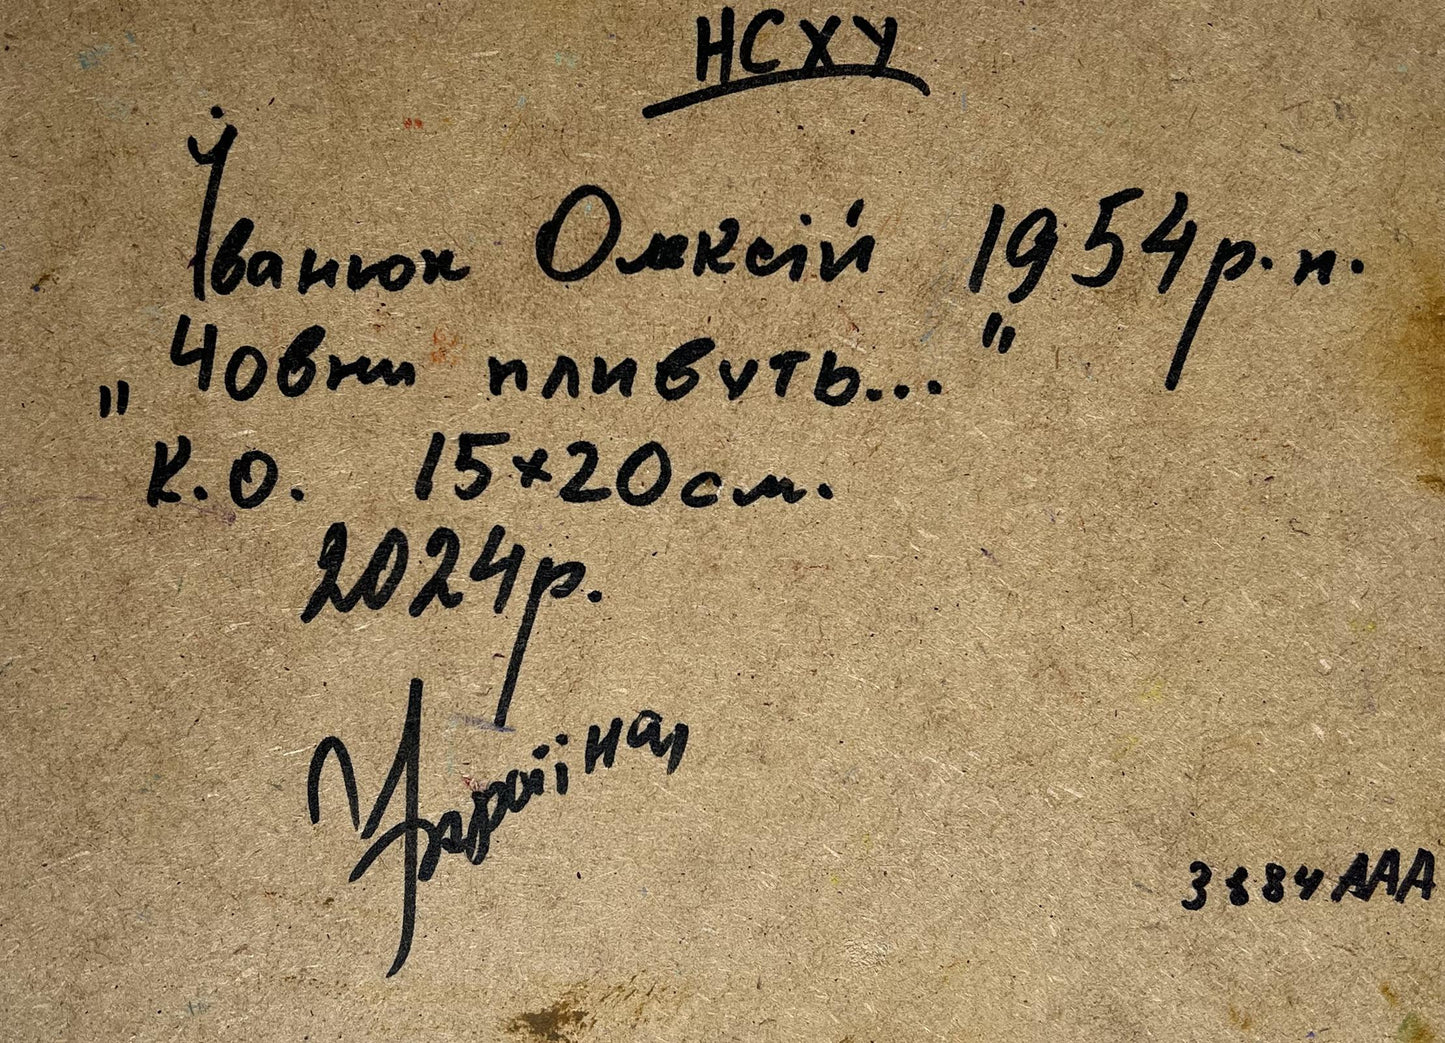 НСХУ
Іванюк Олексій 1954 р.н.
„Човни пливуть..."
К.О. 15×20 см.
2024 р.
Україна
3884 AAA